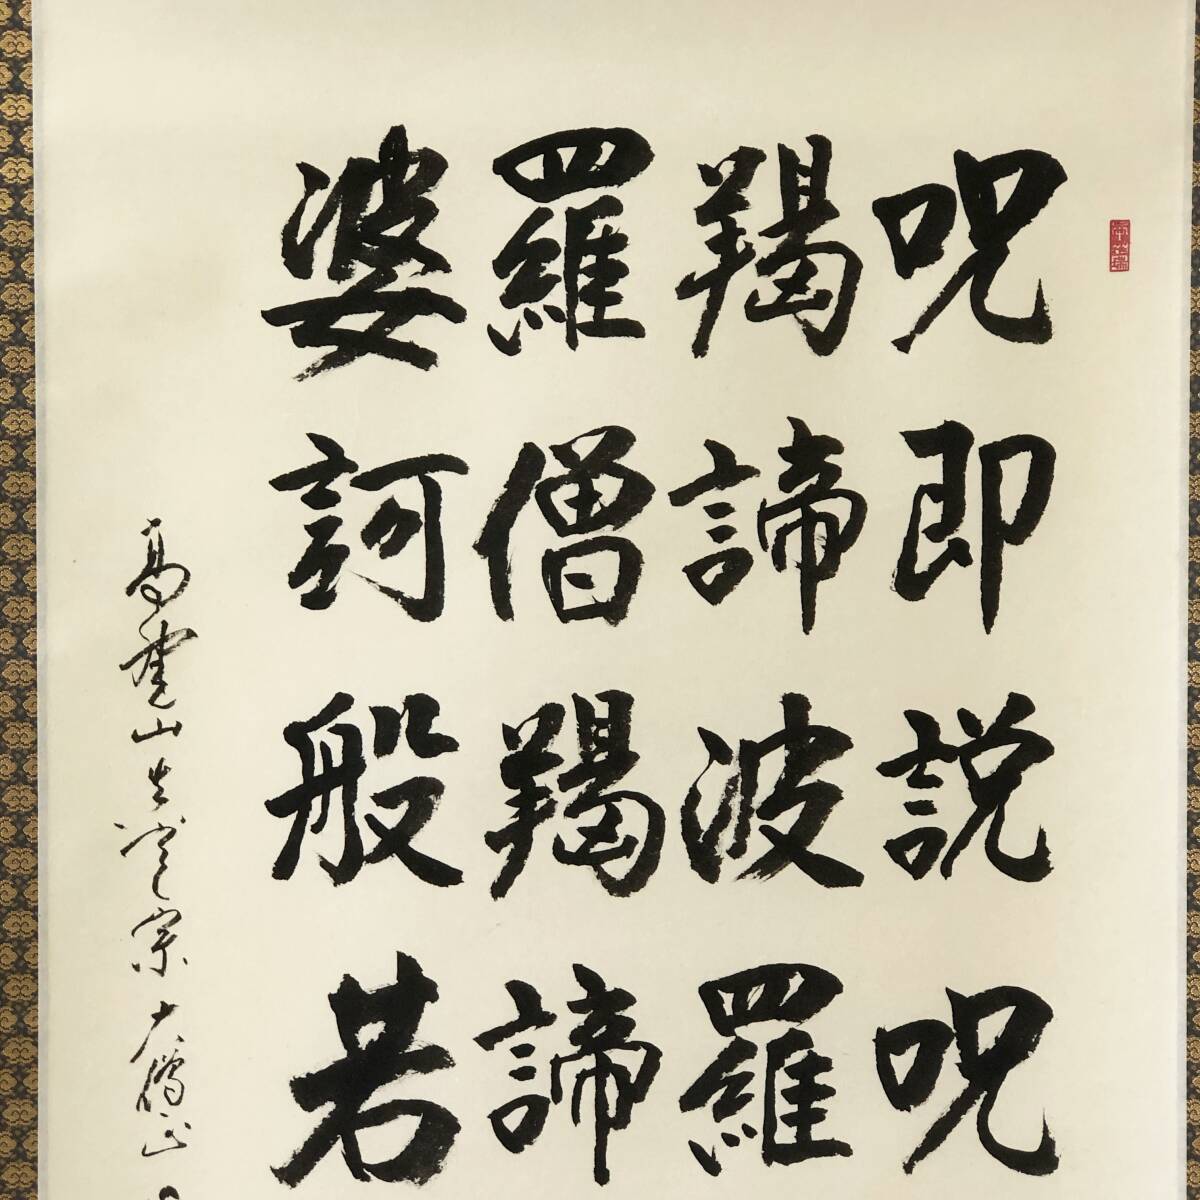 呪即説呪
羯諦波羅
羅僧羯諦
婆訶般若
高野山真言宗大僧正